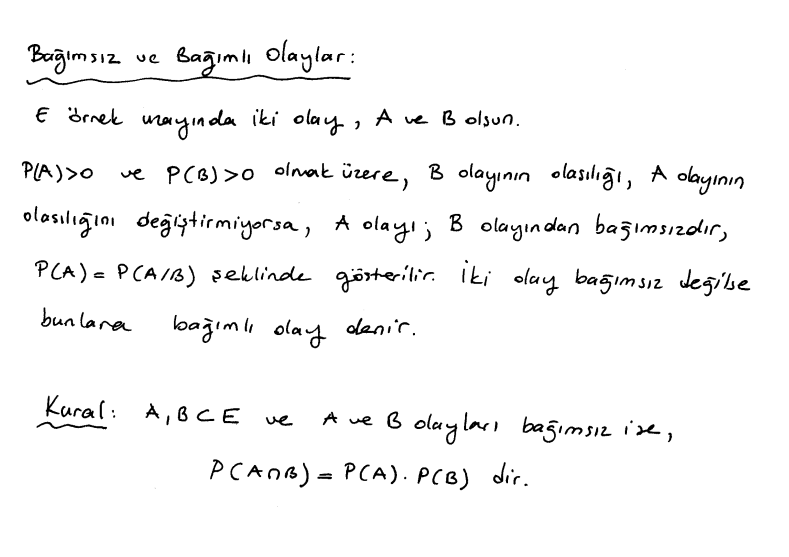 Bağımsız ve Bağımlı Olaylar:
E örnek uzayında iki olay, A ve B olsun.
P(A)>0 ve P(B)>0 olmak üzere, B olayının olasılığı, A olayının
olasılığını değiştirmiyorsa, A olayı; B olayından bağımsızdır,
P(A) = P(A/B) şeklinde gösterilir. İki olay bağımsız değilse
bunlara bağımlı olay denir.
Kural: A, B ⊂ E ve A ve B olayları bağımsız ise,
P(A∩B) = P(A). P(B) dir.